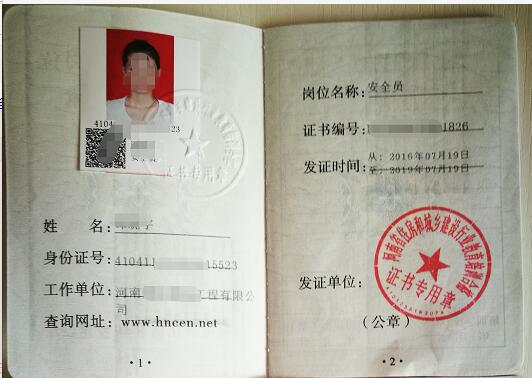 4104
23
姓 名：
身份证号：41041 15523
工作单位：河南 工程有限公
司
查询网址：www.hncen.net
·1·
岗位名称：安全员
证书编号： 1826
发证时间：从：2016年07月19日
至：2019年07月19日
发证单位：
河南省住房和城乡建设行业教育培训
证书专用章
（公章）
·2·